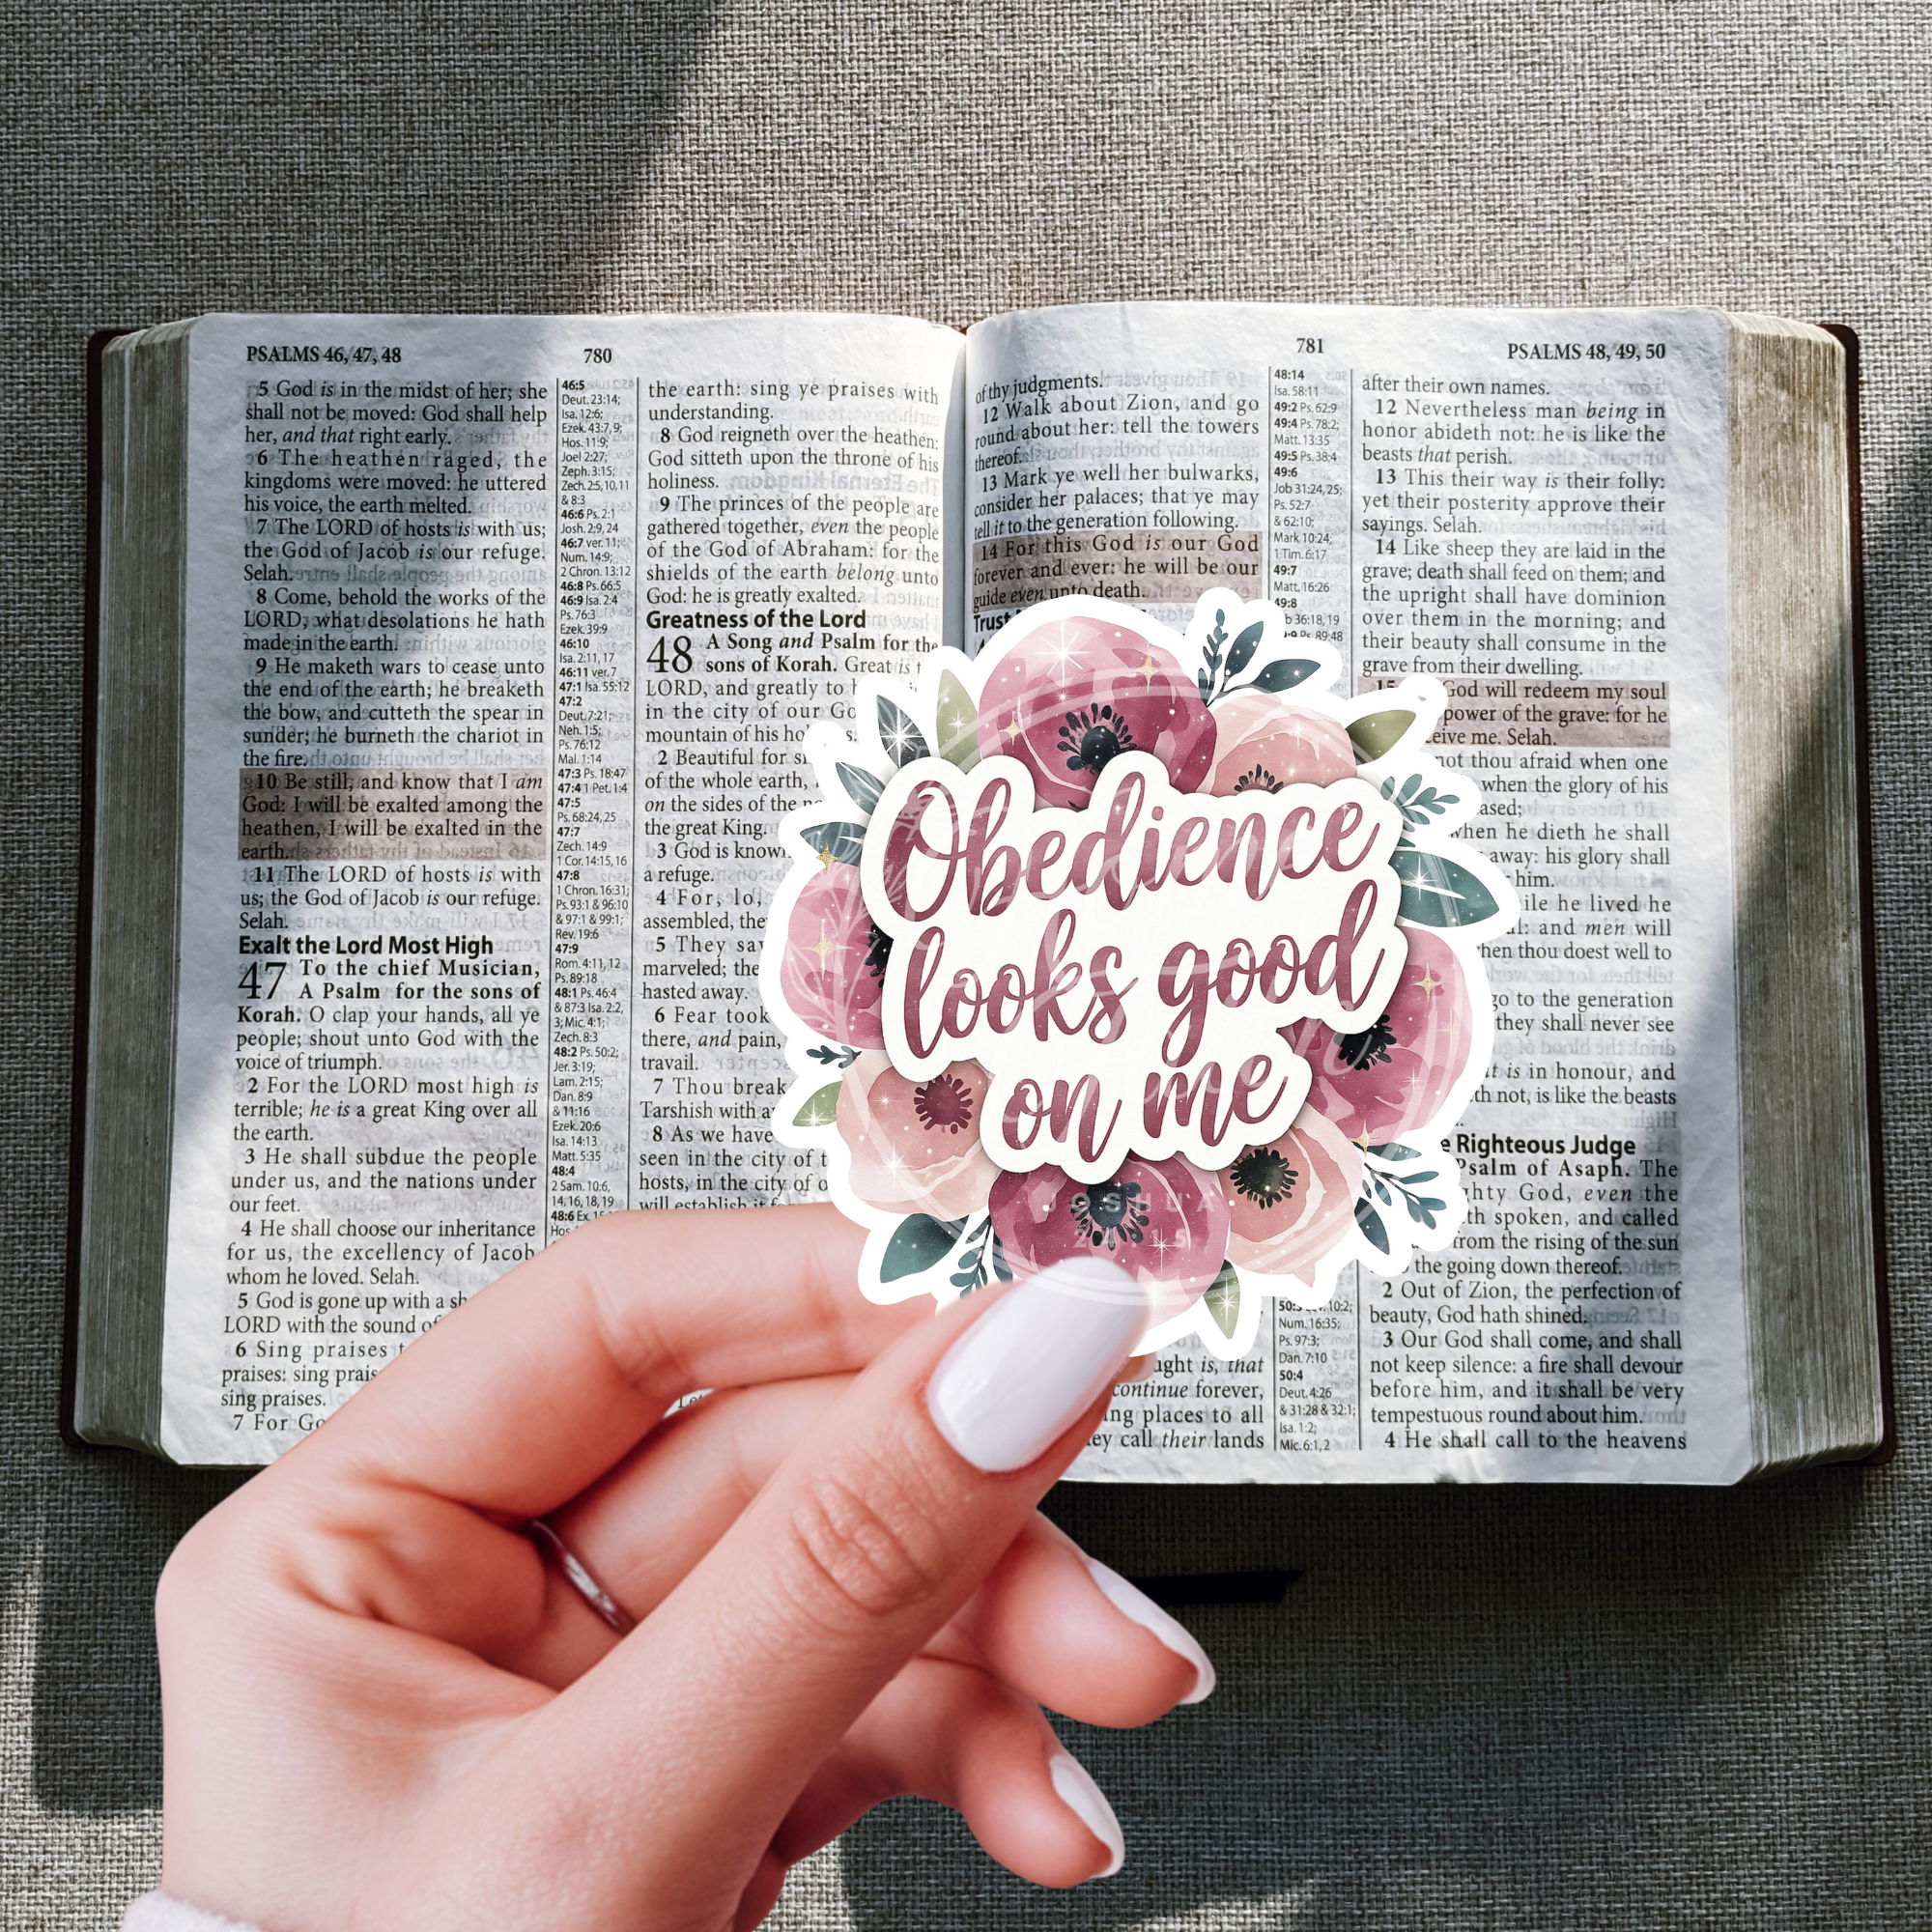 PSALMS 46, 47, 48
780
5 God is in the midst of her; she
shall not be moved: God shall help
her, and that right early.
6 The heathen raged, the
kingdoms were moved: he uttered
his voice, the earth melted.
7 The LORD of hosts is with us;
the God of Jacob is our refuge.
Selah.
8 Come, behold the works of the
LORD, what desolations he hath
made in the earth.
9 He maketh wars to cease unto
the end of the earth; he breaketh
the bow, and cutteth the spear in
sunder; he burneth the chariot in
the fire.
10 Be still, and know that I am
God: I will be exalted among the
heathen, I will be exalted in the
earth.
11 The LORD of hosts is with
us; the God of Jacob is our refuge.
Selah.
Exalt the Lord Most High
47 To the chief Musician,
A Psalm for the sons of
Korah. O clap your hands, all ye
people; shout unto God with the
voice of triumph.
2 For the LORD most high is
terrible; he is a great King over all
the earth.
3 He shall subdue the people
under us, and the nations under
our feet.
4 He shall choose our inheritance
for us, the excellency of Jacob
whom he loved. Selah.
5 God is gone up with a
LORD with the sound
6 Sing praises
praises: sing
sing praises.
7 For
46:5
Deut. 23:14;
Isa. 12:6;
Ezek. 43:7, 9;
Hos. 11:9;
Joel 2:27;
Zeph. 3:15;
Zech. 2:5, 10, 11
& 8:3
46:6 Ps. 2:1
Josh. 2:9, 24
46:7 ver. 11;
Num. 14:9;
2 Chron. 13:12
46:8 Ps. 66:5
46:9 Isa. 2:4
Ps. 76:3
Ezek. 39:9
46:10
Isa. 2:11, 17
46:11 ver. 7
47:1 Isa. 55:12
47:2
Deut. 7:21;
Neh. 1:5;
Ps. 76:12
Mal. 1:14
47:3 Ps. 18:47
47:4 1 Pet. 1:4
47:5
Ps. 68:24, 25
47:7
Zech. 14:9
1 Cor. 14:15, 16
47:8
1 Chron. 16:31;
Ps. 93:1 & 96:10
& 97:1 & 99:1;
Rev. 19:6
47:9
Rom. 4:11, 12
Ps. 89:18
48:1 Ps. 46:4
& 87:3 Isa. 2:2,
3; Mic. 4:1;
Zech. 8:3
48:2 Ps. 50:2;
Jer. 3:19;
Lam. 2:15;
Dan. 8:9
& 11:16
Ezek. 20:6
Isa. 14:13
Matt. 5:35
48:4
2 Sam. 10:6,
14, 16, 18, 19
48:6 Ex.
Hos.
the earth: sing ye praises with
understanding.
8 God reigneth over the heathen:
God sitteth upon the throne of his
holiness.
9 The princes of the people are
gathered together, even the people
of the God of Abraham: for the
shields of the earth belong unto
God: he is greatly exalted.
Greatness of the Lord
48 A Song and Psalm for the
sons of Korah. Great is
LORD, and greatly to
in the city of our
mountain of his
2 Beautiful for
of the whole earth,
on the sides of the
the great King.
3 God is
a refuge.
4 For, lo,
assembled,
5 They
marveled;
hasted away.
6 Fear took
there, and pain,
travail.
7 Thou
Tarshish with
8 As we have
seen in the city of
hosts, in the city of
will establish it
781
PSALMS 48, 49, 50
of thy judgments.
12 Walk about Zion, and go
round about her: tell the towers
thereof.
13 Mark ye well her bulwarks,
consider her palaces; that ye may
tell it to the generation following.
14 For this God is our God
forever and ever: he will be our
guide even unto death.
Trust
is, that
continue forever,
places to all
call their lands
48:14
Isa. 58:11
49:2 Ps. 62:9
49:4 Ps. 78:2;
Matt. 13:35
49:5 Ps. 38:4
49:6
Job 31:24, 25;
Ps. 52:7
& 62:10;
Mark 10:24;
1 Tim. 6:17
49:7
Matt. 16:26
49:8
36:18, 19
Ps. 89:48
10:2;
Num. 16:35;
Ps. 97:3;
Dan. 7:10
50:4
Deut. 4:26
& 31:28 & 32:1;
Isa. 1:2;
Mic. 6:1, 2
after their own names.
12 Nevertheless man being in
honor abideth not: he is like the
beasts that perish.
13 This their way is their folly:
yet their posterity approve their
sayings. Selah.
14 Like sheep they are laid in the
grave; death shall feed on them; and
the upright shall have dominion
over them in the morning; and
their beauty shall consume in the
grave from their dwelling.
15 God will redeem my soul
power of the grave: for he
me. Selah.
not thou afraid when one
when the glory of his
when he dieth he shall
away: his glory shall
him.
he lived he
and men will
when thou doest well to
go to the generation
they shall never see
is in honour, and
not, is like the beasts
Righteous Judge
Psalm of Asaph. The
God, even the
spoken, and called
from the rising of the sun
the going down thereof.
2 Out of Zion, the perfection of
beauty, God hath shined.
3 Our God shall come, and shall
not keep silence: a fire shall devour
before him, and it shall be very
tempestuous round about him.
4 He shall call to the heavens
Obedience
looks good
on me
JOSHUA